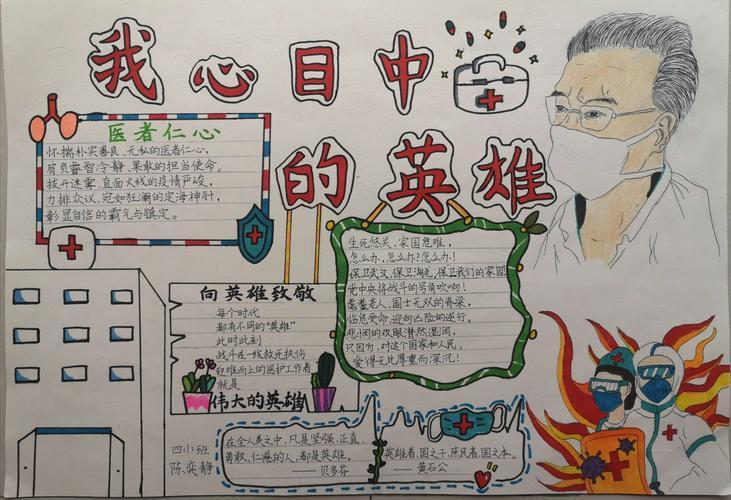 我心目中
的英雄
医者仁心
怀揣朴实善良、无私的医者仁心,
肩负睿智冷静、果敢的担当使命。
拨开迷雾,直面火线的疫情严峻,
力排众议,宛如狂澜的定海神针,
彰显自信的霸气与镇定。
生死攸关,家国危难,
怎么办,怎么办?怎么办!
保卫武汉,保卫湖北,保卫我们的家园
党中央将战斗的号角吹响!
耄耋老人,国士无双的脊梁,
临危受命,迎向凶险的逆行。
悲悯的双眼潸然湿润,
只因为,对这个国家和人民,
爱得无比厚重而深沉!
向英雄致敬
每个时代
都有不同的“英雄”
此时此刻
战斗在一线救死扶伤
和难而上的医护工作者
就是
伟大的英雄
四小班
陈奕静
在全人类之中,凡是坚强、正直、
勇敢、仁慈的人,都是英雄。
——贝多芬
英雄者,国之干,庶民者,国之本。
——黄石公